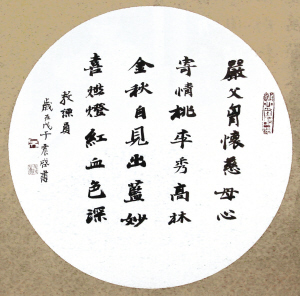 嚴父胃懷慈母心
寄情桃李秀高林
金秋自見出藍妙
喜燃燈紅血色深
教師頌
歲在戊子 書